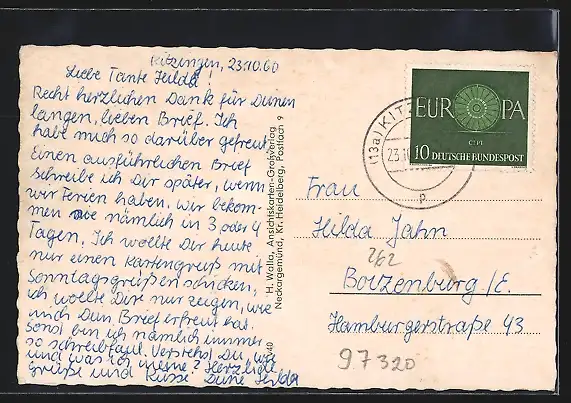 Kitzingen, 23.10.60
Liebe Tante Hilda!
Recht herzlichen Dank für Deinen
langen, lieben Brief. Ich
habe mich so darüber gefreut.
Einen ausführlichen Brief
schreibe ich Dir später, wenn
wir Ferien haben. Wir bekom-
men nämlich in 3 oder 4
Tagen. Ich wollte Dir heute
nur einen Kartengruß mit
Sonntagsgrüßen schicken,
ich wollte Dir nur zeigen, wie
mich Dein Brief erfreut hat.
Sonst bin ich nämlich immer
so schreibfaul. Verstehst Du, wie
und was ich meine? Herzliche
Grüße und Küsse Deine Hilda
H. Walla, Ansichtskarten-Großverlag
Neckargemünd, Kr. Heidelberg, Postfach 9
40
(13a) KITZ
23.10
p
EUROPA
CEPT
10 DEUTSCHE BUNDESPOST
Frau
Hilda Jahn
262
Boizenburg /E.
Hamburgerstraße 43
97320